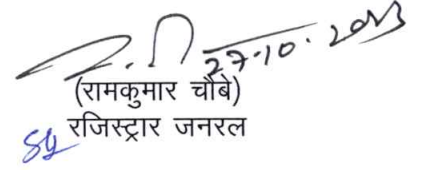 27.10.2023
(रामकुमार चौबे)
रजिस्ट्रार जनरल